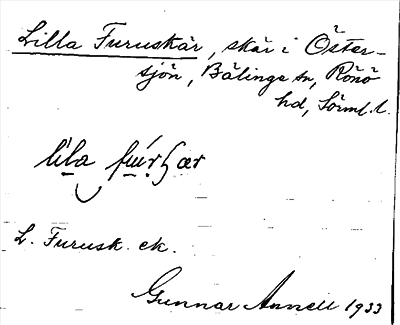 Lilla Furuskär, skär i Öster-
sjön, Bälinge sn, Rönö
hd, Sörml. l.
lila
L. Furusk. ek.
Gunnar Annell 1933